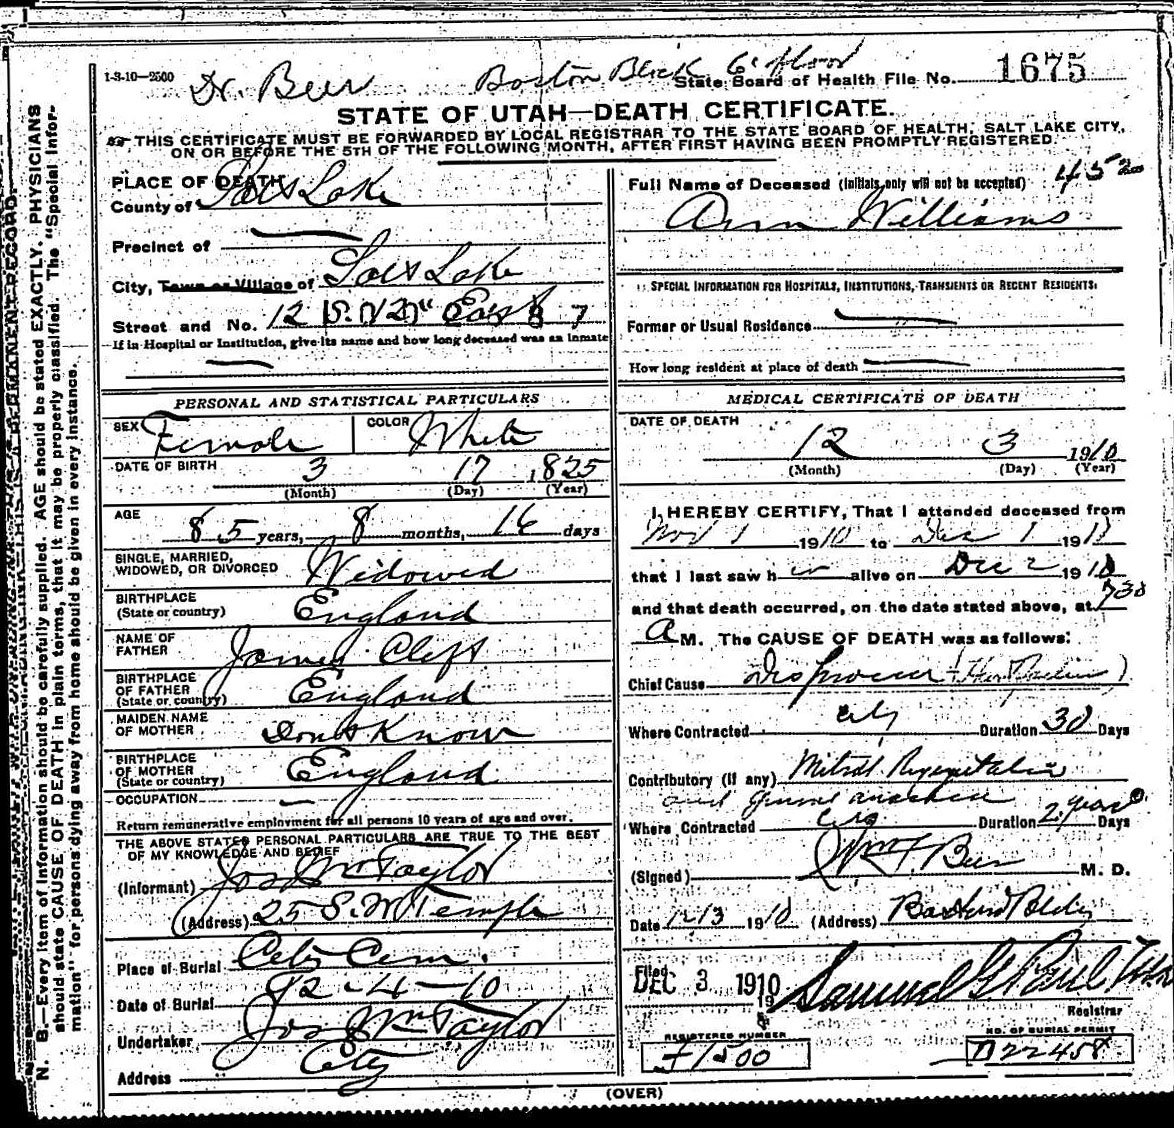 1-3-10-2500
Dr. Beer Boston Block 6' floor
State Board of Health File No. 1675
STATE OF UTAH—DEATH CERTIFICATE.
THIS CERTIFICATE MUST BE FORWARDED BY LOCAL REGISTRAR TO THE STATE BOARD OF HEALTH, SALT LAKE CITY,
ON OR BEFORE THE 5TH OF THE FOLLOWING MONTH, AFTER FIRST HAVING BEEN PROMPTLY REGISTERED.
PLACE OF DEATH
County of Salt Lake
Precinct of
City, Town or Village of Salt Lake
Street and No. 12 East
If in Hospital or Institution, give its name and how long deceased was an inmate
PERSONAL AND STATISTICAL PARTICULARS
SEX Female COLOR White
DATE OF BIRTH 3 17 1825
(Month) (Day) (Year)
AGE 85 years, 8 months, 16 days
SINGLE, MARRIED,
WIDOWED, OR DIVORCED Widowed
BIRTHPLACE
(State or country) England
NAME OF
FATHER James Clift
BIRTHPLACE
OF FATHER
(State or country) England
MAIDEN NAME
OF MOTHER Dont Know
BIRTHPLACE
OF MOTHER
(State or country) England
OCCUPATION —
Return remunerative employment for all persons 10 years of age and over.
THE ABOVE STATED PERSONAL PARTICULARS ARE TRUE TO THE BEST
OF MY KNOWLEDGE AND BELIEF
(Informant) Jos Wm Taylor
(Address) 25 S. W Temple
Place of Burial City Cem.
Date of Burial 12-4-10
Undertaker Jos Wm Taylor
Address City
Full Name of Deceased (Initials only will not be accepted) 45
Ann Williams
SPECIAL INFORMATION FOR HOSPITALS, INSTITUTIONS, TRANSIENTS OR RECENT RESIDENTS.
Former or Usual Residence
How long resident at place of death
MEDICAL CERTIFICATE OF DEATH
DATE OF DEATH
12 3 1910
(Month) (Day) (Year)
I HEREBY CERTIFY, That I attended deceased from
Nov 1 1910 to Dec 1 191
that I last saw her alive on Dec 2 1910
and that death occurred, on the date stated above, at 730
A M. The CAUSE OF DEATH was as follows:
Chief Cause
Where Contracted City Duration 30 Days
Contributory (if any) Mitral Regurgitation
and general anasarca
Where Contracted City Duration 2 years Days
(Signed) Wm F Beer M. D.
Date 12/3 1910 (Address) Boston Bldg
Filed
DEC 3 1910
Samuel G Paul
Registrar
REGISTERED NUMBER
1500
NO. OF BURIAL PERMIT
B22458
(OVER)
N. B.—Every item of information should be carefully supplied. AGE should be stated EXACTLY. PHYSICIANS
should state CAUSE OF DEATH in plain terms, that it may be properly classified. The "Special Infor-
mation" for persons dying away from home should be given in every instance.